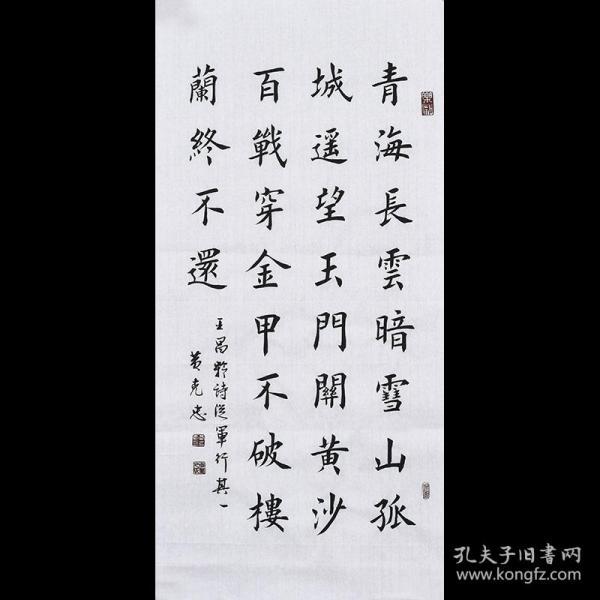 青海長雲暗雪山孤
城遥望玉門關黄沙
百戰穿金甲不破樓
蘭終不還
王昌齡詩從軍行其一
黄克忠
孔夫子旧书网
www.kongfz.com